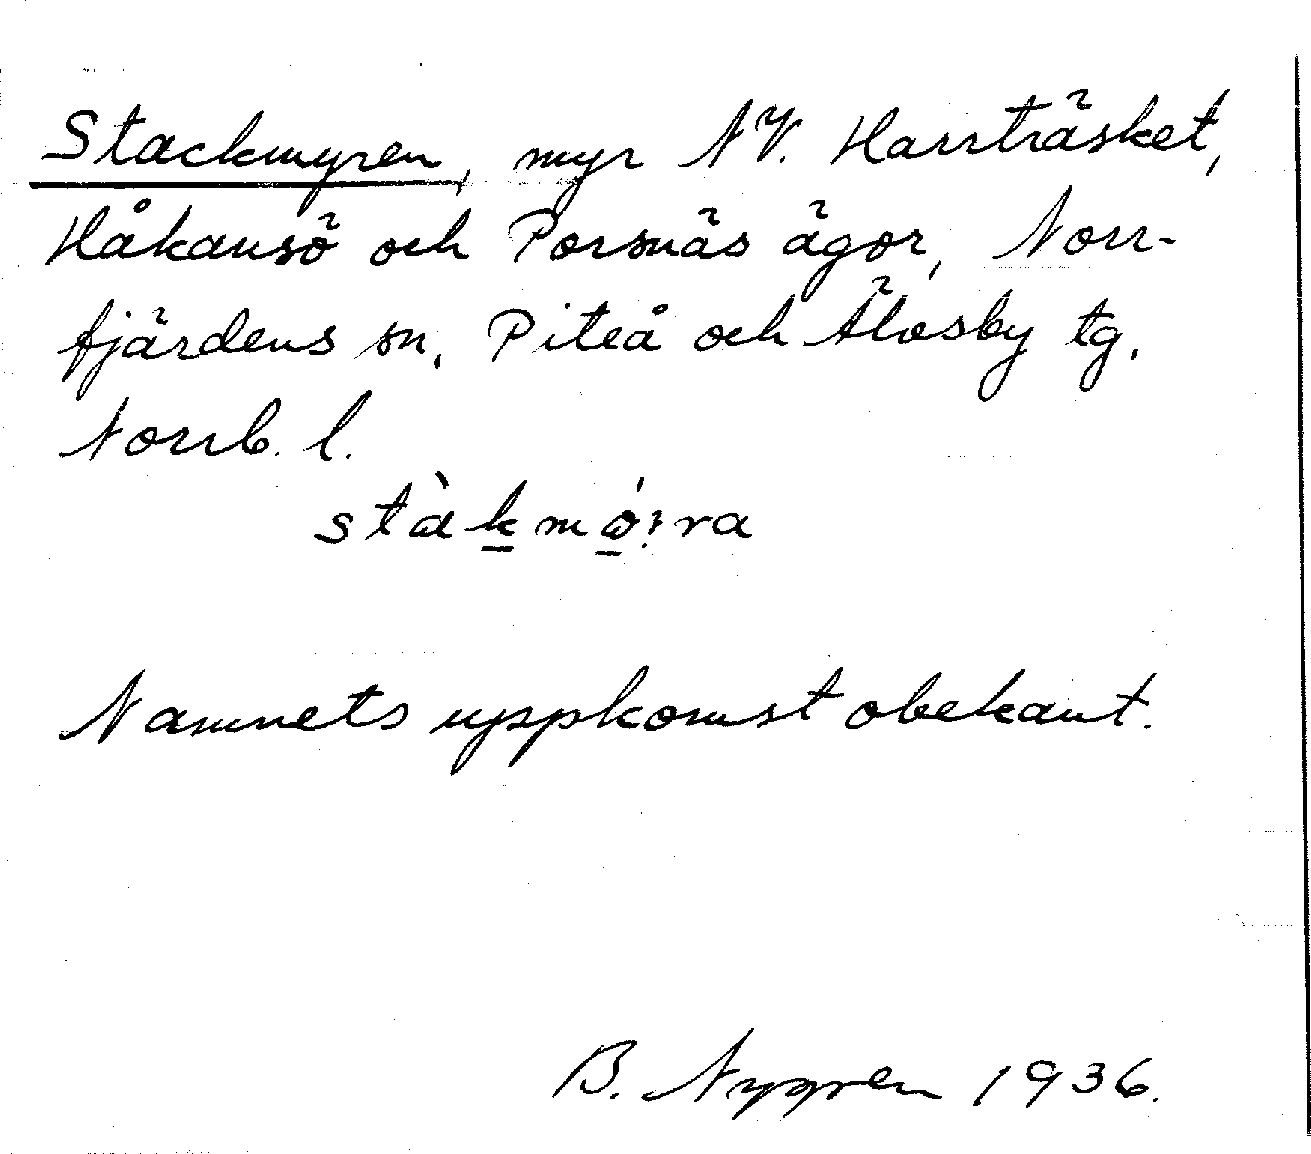 Stackmyren, myr NV. Harrträsket,
Håkansö och Porsnäs ägor, Norr-
fjärdens sn, Piteå och Älvsby tg.
Norrb. l.
stàk̲mó̲:ra
Namnets uppkomst obekant.
B. Nygren 1936.